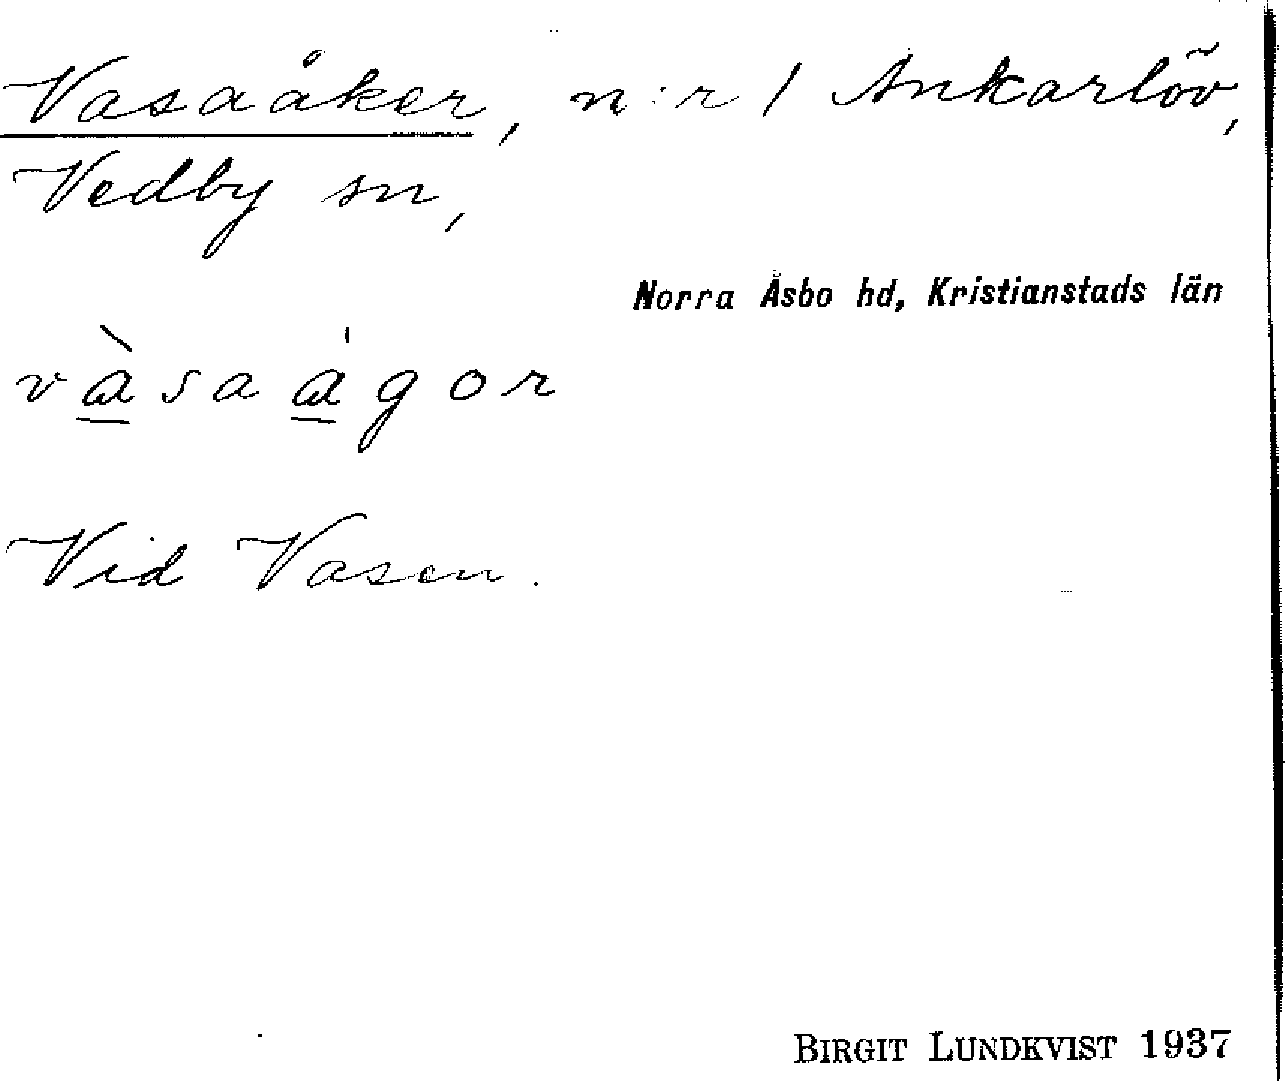 Vasaåker, n:r 1 Ankarlöv,
Vedby sn,
Norra Åsbo hd, Kristianstads län
vàsaágor
Vid Vasen.
BIRGIT LUNDKVIST 1937